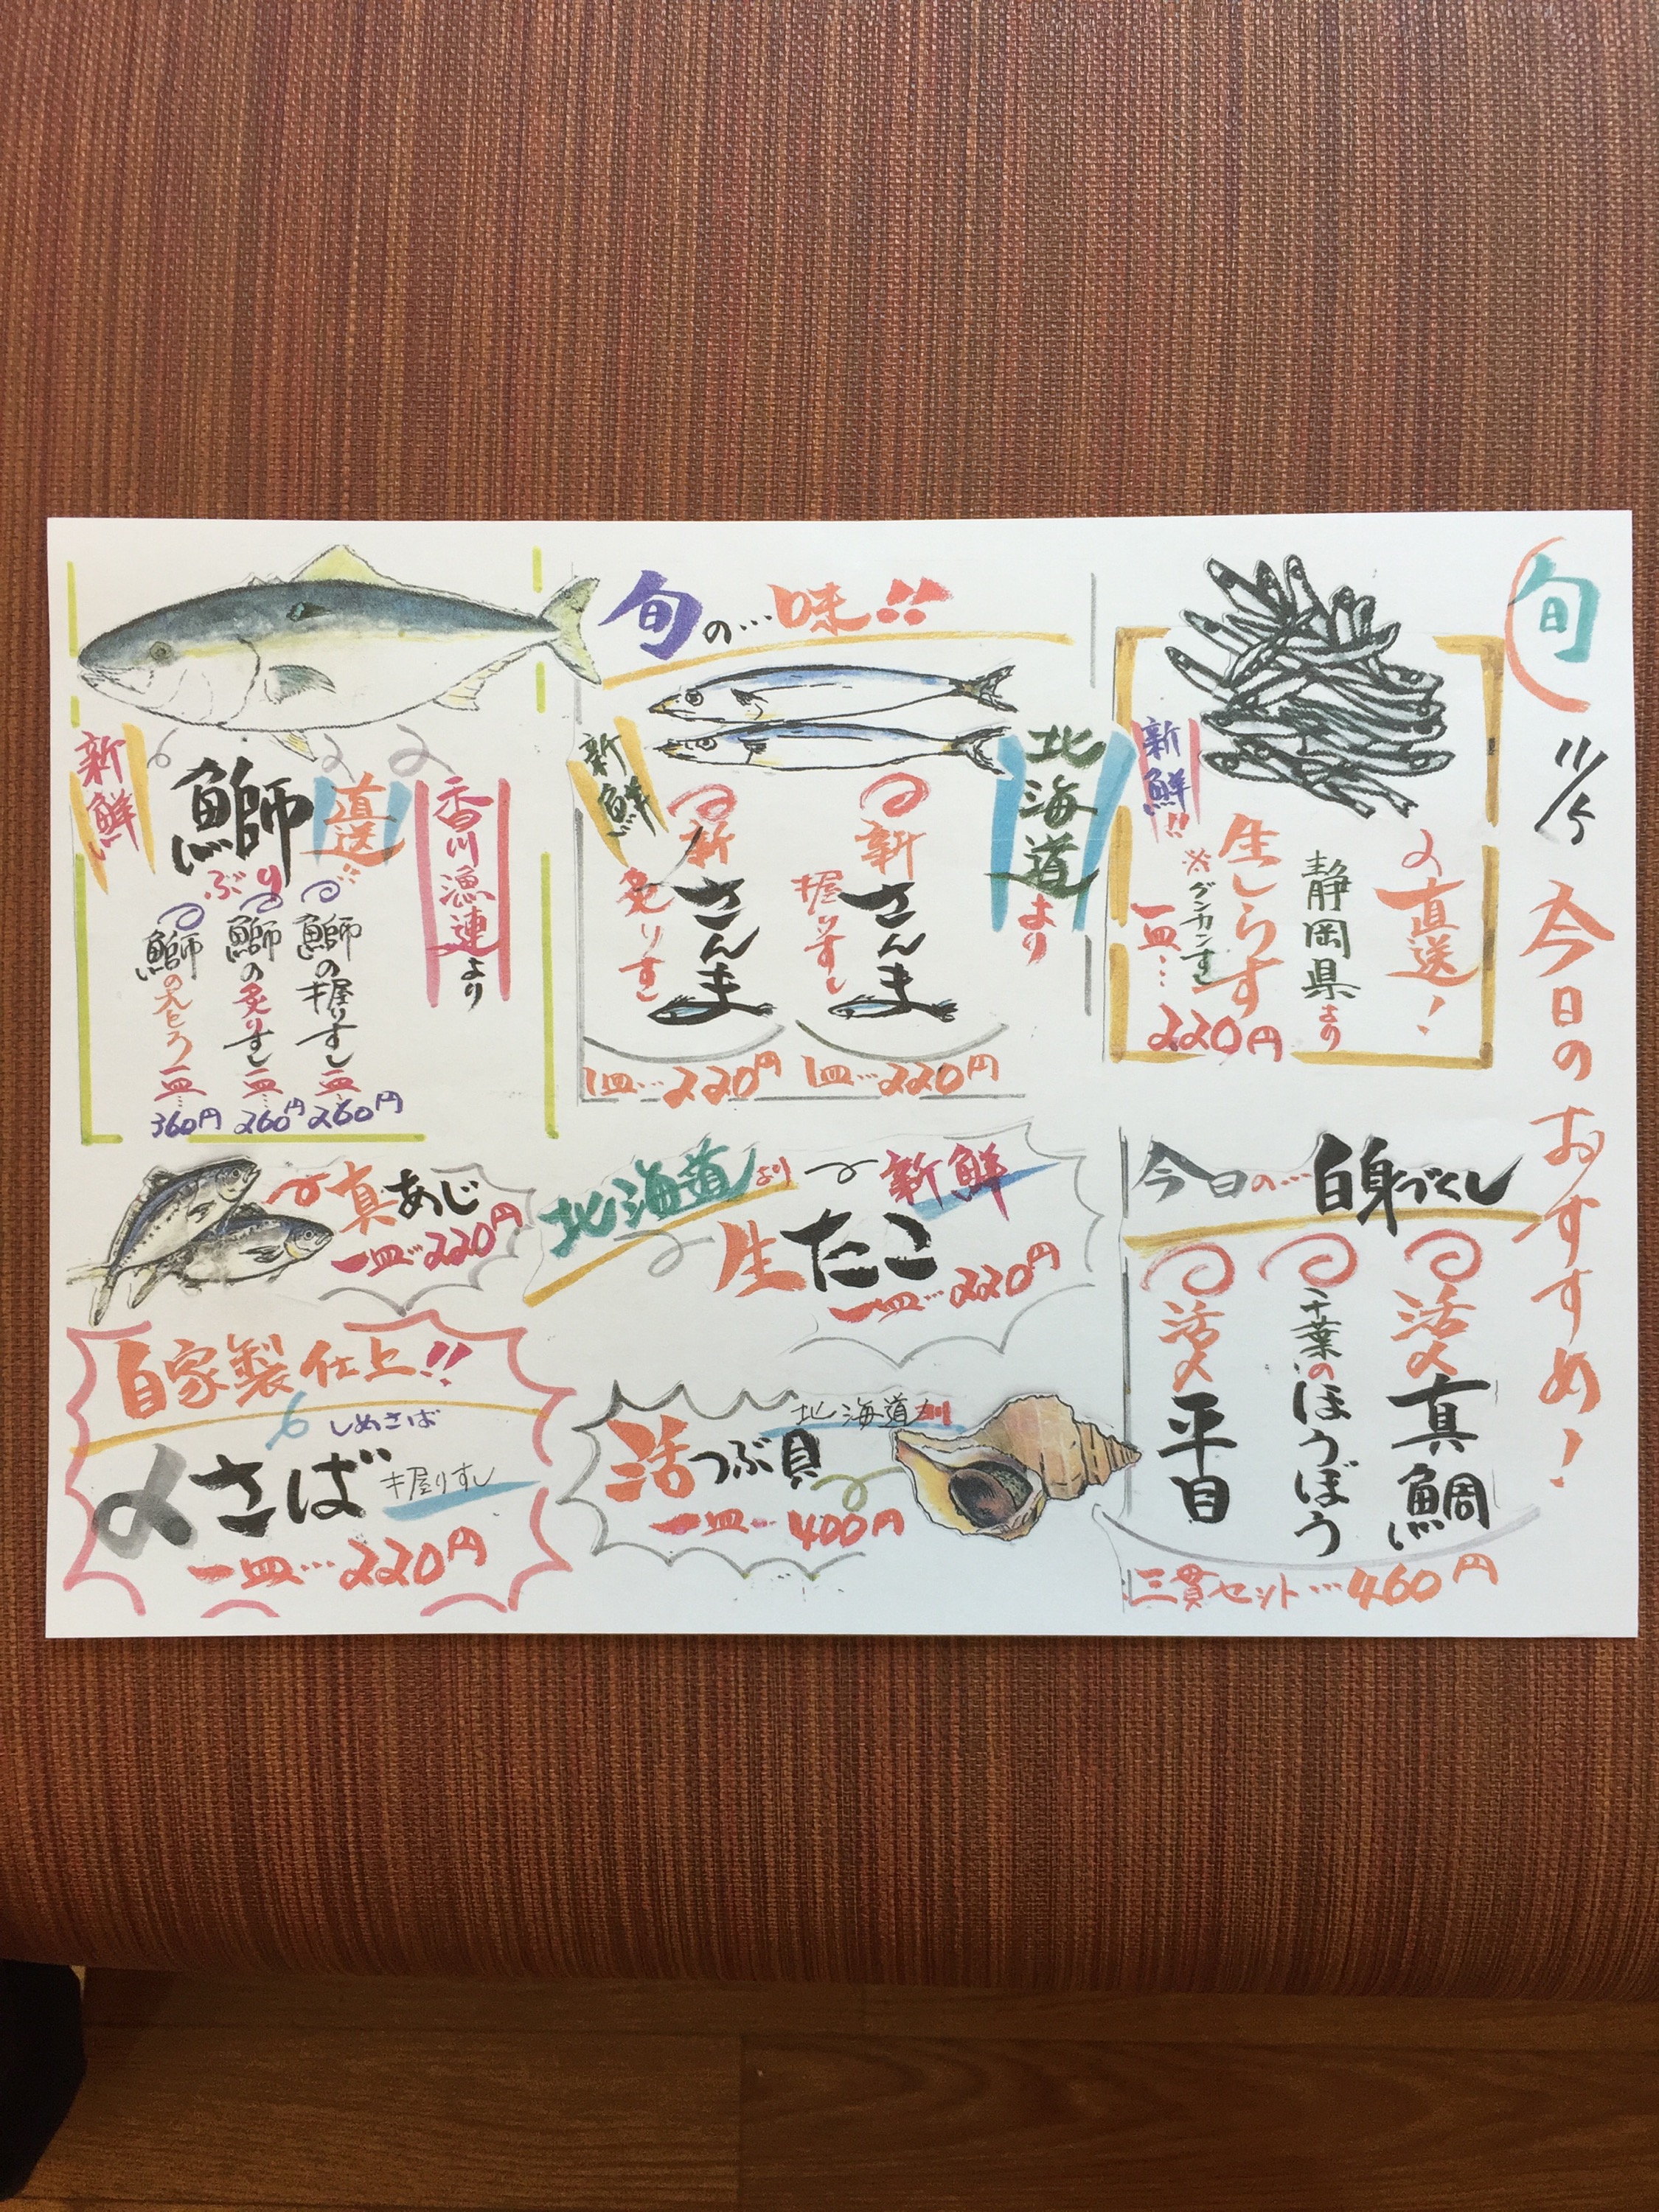 旬
11/5
今日のおすすめ!
直送!
静岡県より
生しらす
※グンカンすし
新鮮!!
一皿…220円
旬の…味!!
北海道より
新鮮
新さんま
握りすし
1皿…220円
新さんま
炙りすし
1皿…220円
香川漁連より
直送!!
鰤
ぶり
新鮮
鰤の握りすし
一皿…
260円
鰤の炙りすし
一皿…
260円
鰤の大とろ
一皿…
360円
今日の…白身づくし
活〆真鯛
千葉のほうぼう
活〆平目
三貫セット…460円
北海道より
新鮮
生たこ
一皿…220円
北海道
活つぶ貝
一皿…400円
真あじ
一皿…220円
自家製仕上!!
しめさば
〆さば
握りすし
一皿…220円